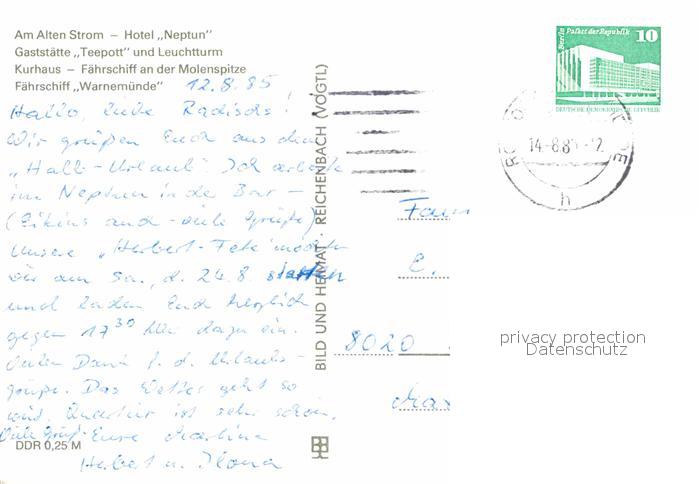 Am Alten Strom – Hotel „Neptun"
Gaststätte „Teepott" und Leuchtturm
Kurhaus – Fährschiff an der Molenspitze
Fährschiff „Warnemünde"
12.8.85
Hallo, liebe Radischs!
Wir grüßen Euch aus dem
„Halb-Urlaub". Ich arbeite
im Neptun in der Bar –
viele Grüße)
Unsere „Herbert-Fete" möchten
wir am Sa., d. 24.8. starten
und laden Euch herzlich
gegen 17³⁰ Uhr dazu ein.
Vielen Dank f. d. Urlaubs-
grüße. Das Wetter geht so
Quartier ist sehr schön.
Viele Grüße Eure Martina
Herbert u. Ilona
DDR 0,25 M
BILD UND HEIMAT · REICHENBACH (VOGTL)
Berlin Palast der Republik
10
DEUTSCHE DEMOKRATISCHE REPUBLIK
14.-8.8
h
Fam
E.
8020
privacy protection
Datenschutz